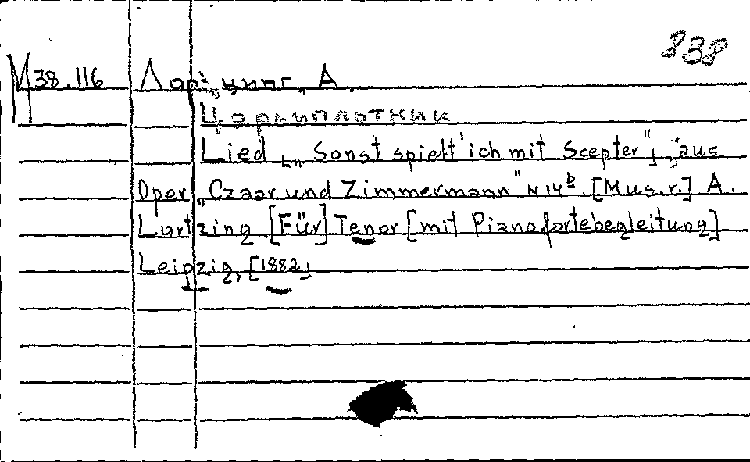 838
M 38.116 Лорцинг, А.
Царь и плотник
Lied „Sonst spielt' ich mit Scepter“, aus
Oper „Czaar und Zimmermann“ N 14b. [Mus.r.] A.
Lortzing [Für] Tenor [mit Pianofortebegleitung]
Leipzig, [1882]